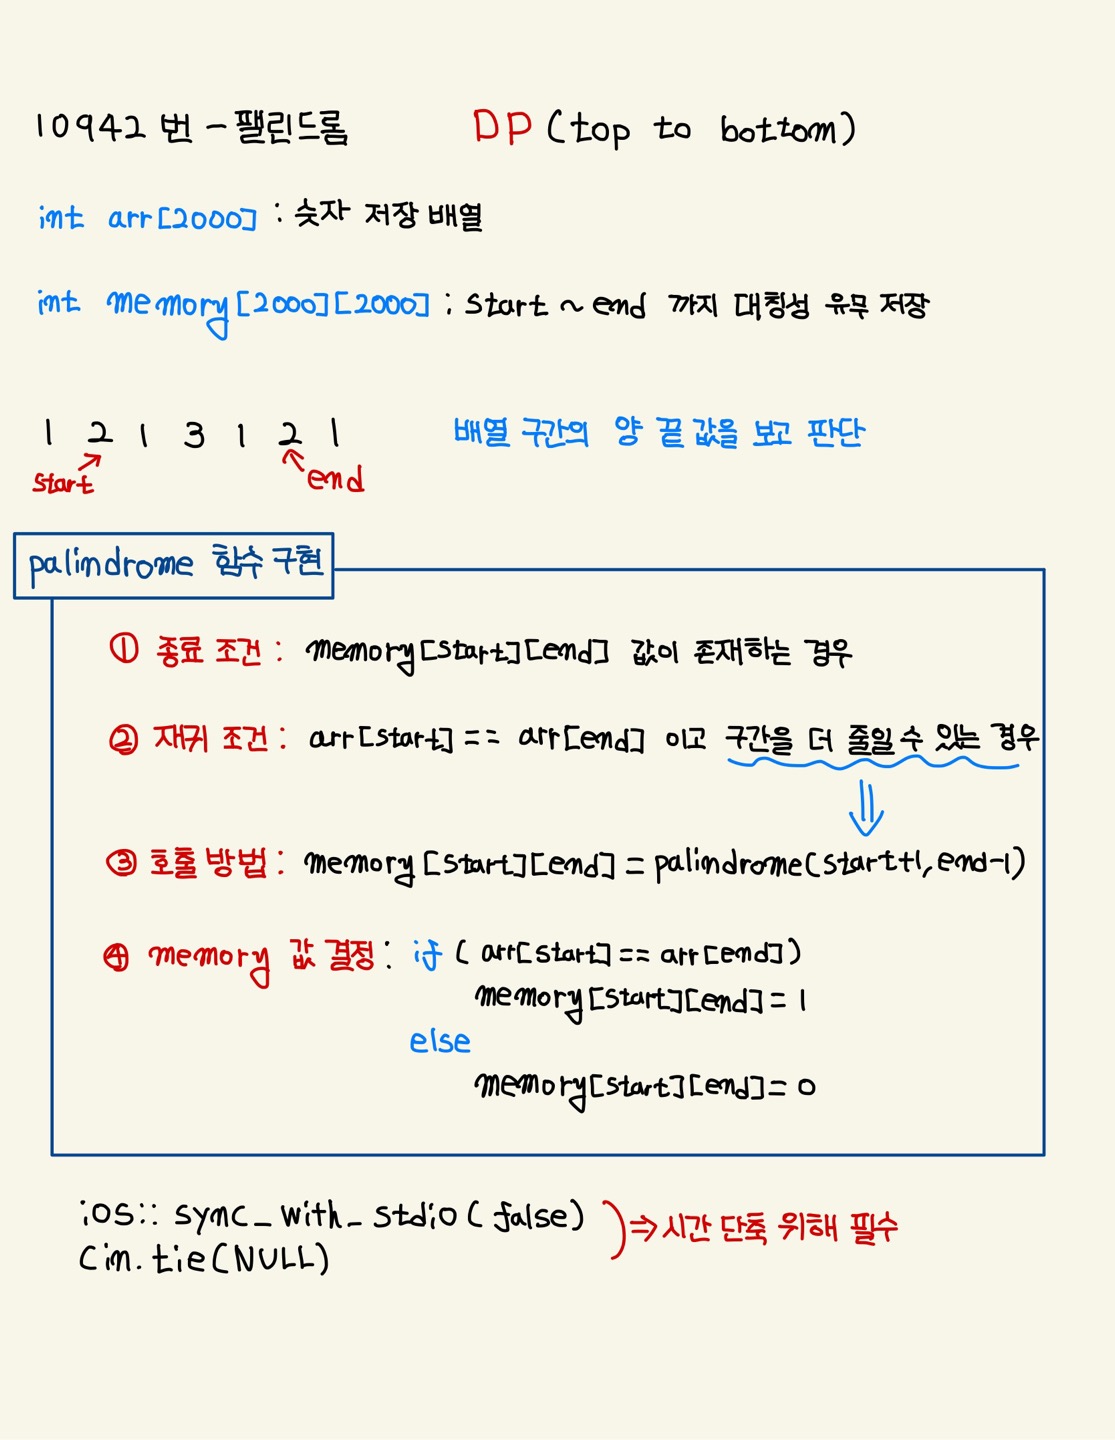 10942번 - 팰린드롬 DP (top to bottom)
int arr[2000] : 숫자 저장 배열
int memory[2000][2000] : start ~ end 까지 대칭성 유무 저장
1 2 1 3 1 2 1 배열 구간의 양 끝 값을 보고 판단
start end
palindrome 함수 구현
① 종료 조건 : memory[start][end] 값이 존재하는 경우
② 재귀 조건 : arr[start] == arr[end] 이고 구간을 더 줄일 수 있는 경우
③ 호출 방법 : memory[start][end] = palindrome(start+1, end-1)
④ memory 값 결정 : if ( arr[start] == arr[end] )
memory[start][end] = 1
else
memory[start][end] = 0
ios:: sync_with_stdio(false)
cin.tie(NULL)
⇒ 시간 단축 위해 필수